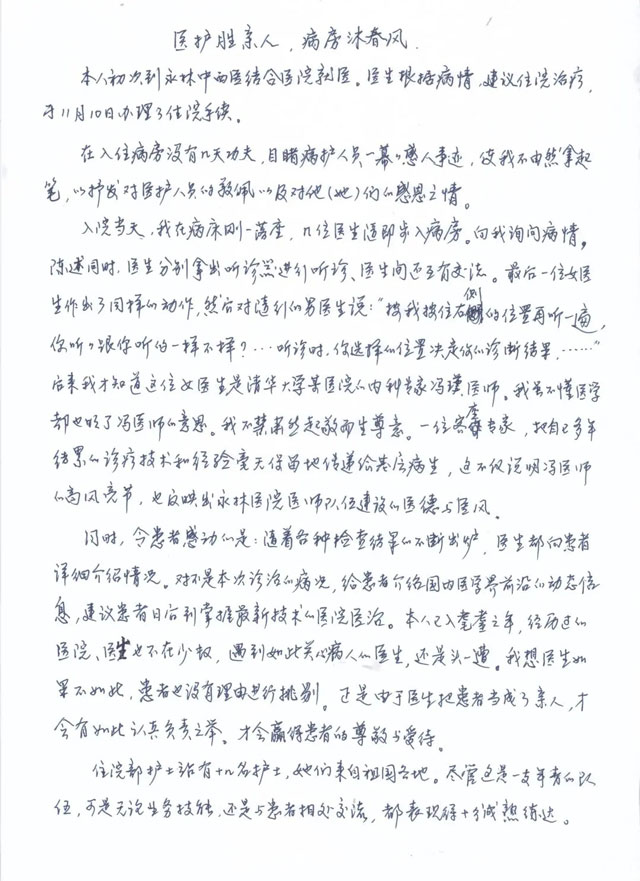 医护胜亲人，病房沐春风.
本人初次到永林中西医结合医院就医。医生根据病情，建议住院治疗，
于11月10日办理了住院手续。
在入住病房没有几天功夫，目睹病护人员一幕幕感人事迹，使我不由然拿起
笔，以抒发对医护人员的敬佩以及对他(她)们的感恩之情。
入院当天，我在病床刚一落座，几位医生随即步入病房。向我询问病情。
陈述同时，医生分别拿出听诊器进行听诊、医生间还互有交流。最后一位女医
生作出了同样的动作，然后对随行的男医生说：“按我按住右侧的位置再听一遍，
你听听跟你听的一样不一样？…听诊时，你选择的位置决定你的诊断结果，……”
后来我才知道这位女医生是清华大学某医院的内科专家冯瑾医师。我虽不懂医学
却也明了冯医师的意思。我不禁肃然起敬而生尊意。一位客座专家，把自己多年
结累的诊疗技术和经验毫无保留地传递给基层病生，这不仅说明冯医师
的高风亮节，也反映出永林医院医师队伍建设的医德与医风。
同时，令患者感动的是：随着各种检查结果的不断出炉，医生都向患者
详细介绍情况。对不是本次诊治的病况，给患者介绍国内医学界前沿的动态信
息，建议患者日后到掌握最新技术的医院医治。本人已入耄耋之年，经历过的
医院、医生也不在少数，遇到如此关心病人的医生，还是头一遭。我想医生如
果不如此，患者也没有理由进行挑剔。正是由于医生把患者当成了亲人，才
会有如此认真负责之举。才会赢得患者的尊敬与爱待。
住院部护士站有十几名护士，她们来自祖国各地。尽管这是一支年青的队
伍，可是无论业务技能，还是与患者相处交流，都表现得十分诚熟练达。